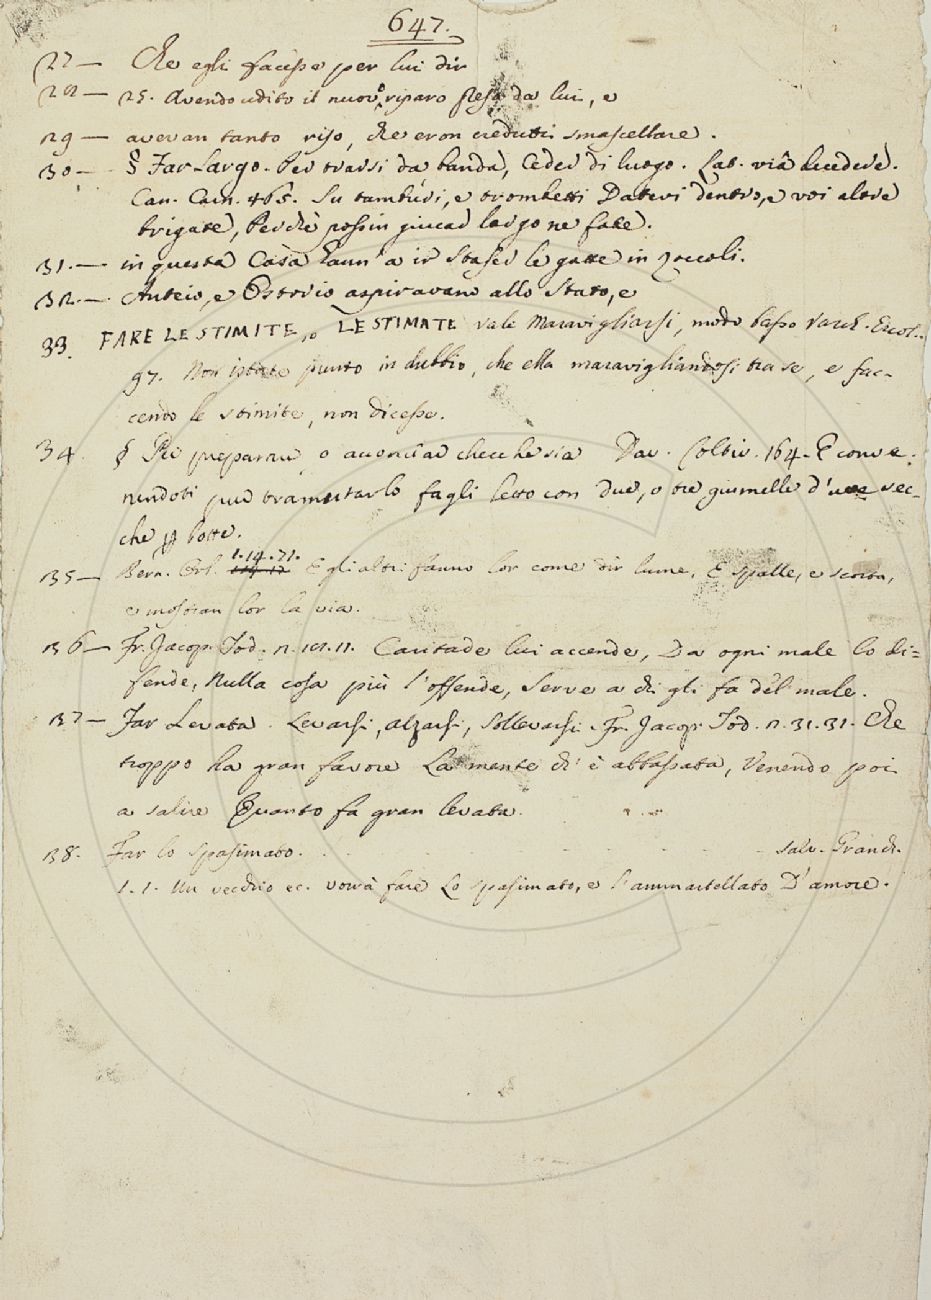 647.
27 — Che egli facesse per lui dir
28 — 25. Avendo udito il nuovo riparo preso da lui, e
29 — avevan tanto riso, che eron creduti smascellare.
30 — § Far Largo. Per trarsi da banda, Ceder di luogo. Lat. viâ decedere.
Can. Carn. 465. Su tamburi, e trombetti Datevi dentro, e voi altre
brigate, Perchè possin giucar largo ne fate.
31. — in questa Casa hann' a ir stasera le gatte in zoccoli.
32. — Anteio, e Ostorio aspiravano allo Stato, e
33. FARE LE STIMITE, o LE STIMATE vale Maravigliarsi, modo basso Varch. Ercol.
97. Non istate punto in dubbio, che ella maravigliandosi tra se, e fac-
cendo le stimite, non dicesse.
34. § Per preparare, o acconciar checchessia Dav. Coltiv. 164. E conve-
nendoti pur tramutarlo fagli letto con due, o tre giumelle d' sec-
che sotto.
35 — Bern. Orl. 1.14.71. E gli altri fanno lor come dir lume, E spalle, e scorta,
e mostran lor la via.
36 — Fr. Jacop. Tod. Caritade lui accende, Da ogni male lo di=
fende, Nulla cosa più l'offende, Serve a chi gli fa del male.
37 — Far Levata. Levarsi, alzarsi, sollevarsi. Fr. Jacop. Tod. 31.31. Che
troppo ha gran favore La mente ch' è abbassata, Venendo poi
a salire Quanto fa gran levata.
38. Far lo spasimato. . . Salv. Granch.
1.1. Un vecchio ec. vorrà fare Lo spasimato, e l'ammartellato D'amore.